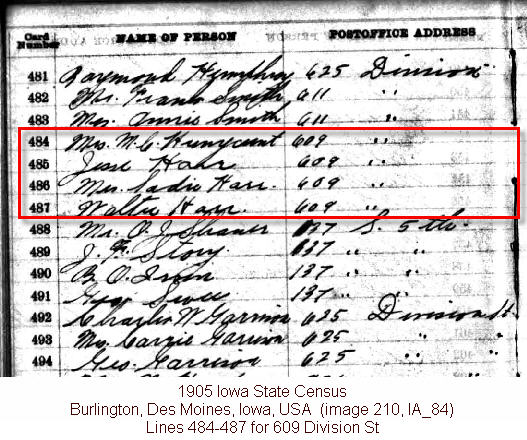 Card Number NAME OF PERSON POSTOFFICE ADDRESS
481 Raymond Humphrey 625 Division
482 Mr. Frank Smith 611 "
483 Mrs. Annie Smith 611 "
484 Mrs. M. C. 609 "
485 Jesse Harr 609 "
486 Mrs. Sadie Harr. 609 "
487 Walter Harr. 609 "
488 Mr. O. J. 137 S. 5th.
489 J. F. Story. 137 " "
490 B. O. 137 " "
491 137 " "
492 Charlie W Garrison 625 Division St
493 Mrs. Carrie Garrison 625 " "
494 Geo. Garrison 625 " "
1905 Iowa State Census
Burlington, Des Moines, Iowa, USA (image 210, IA_84)
Lines 484-487 for 609 Division St